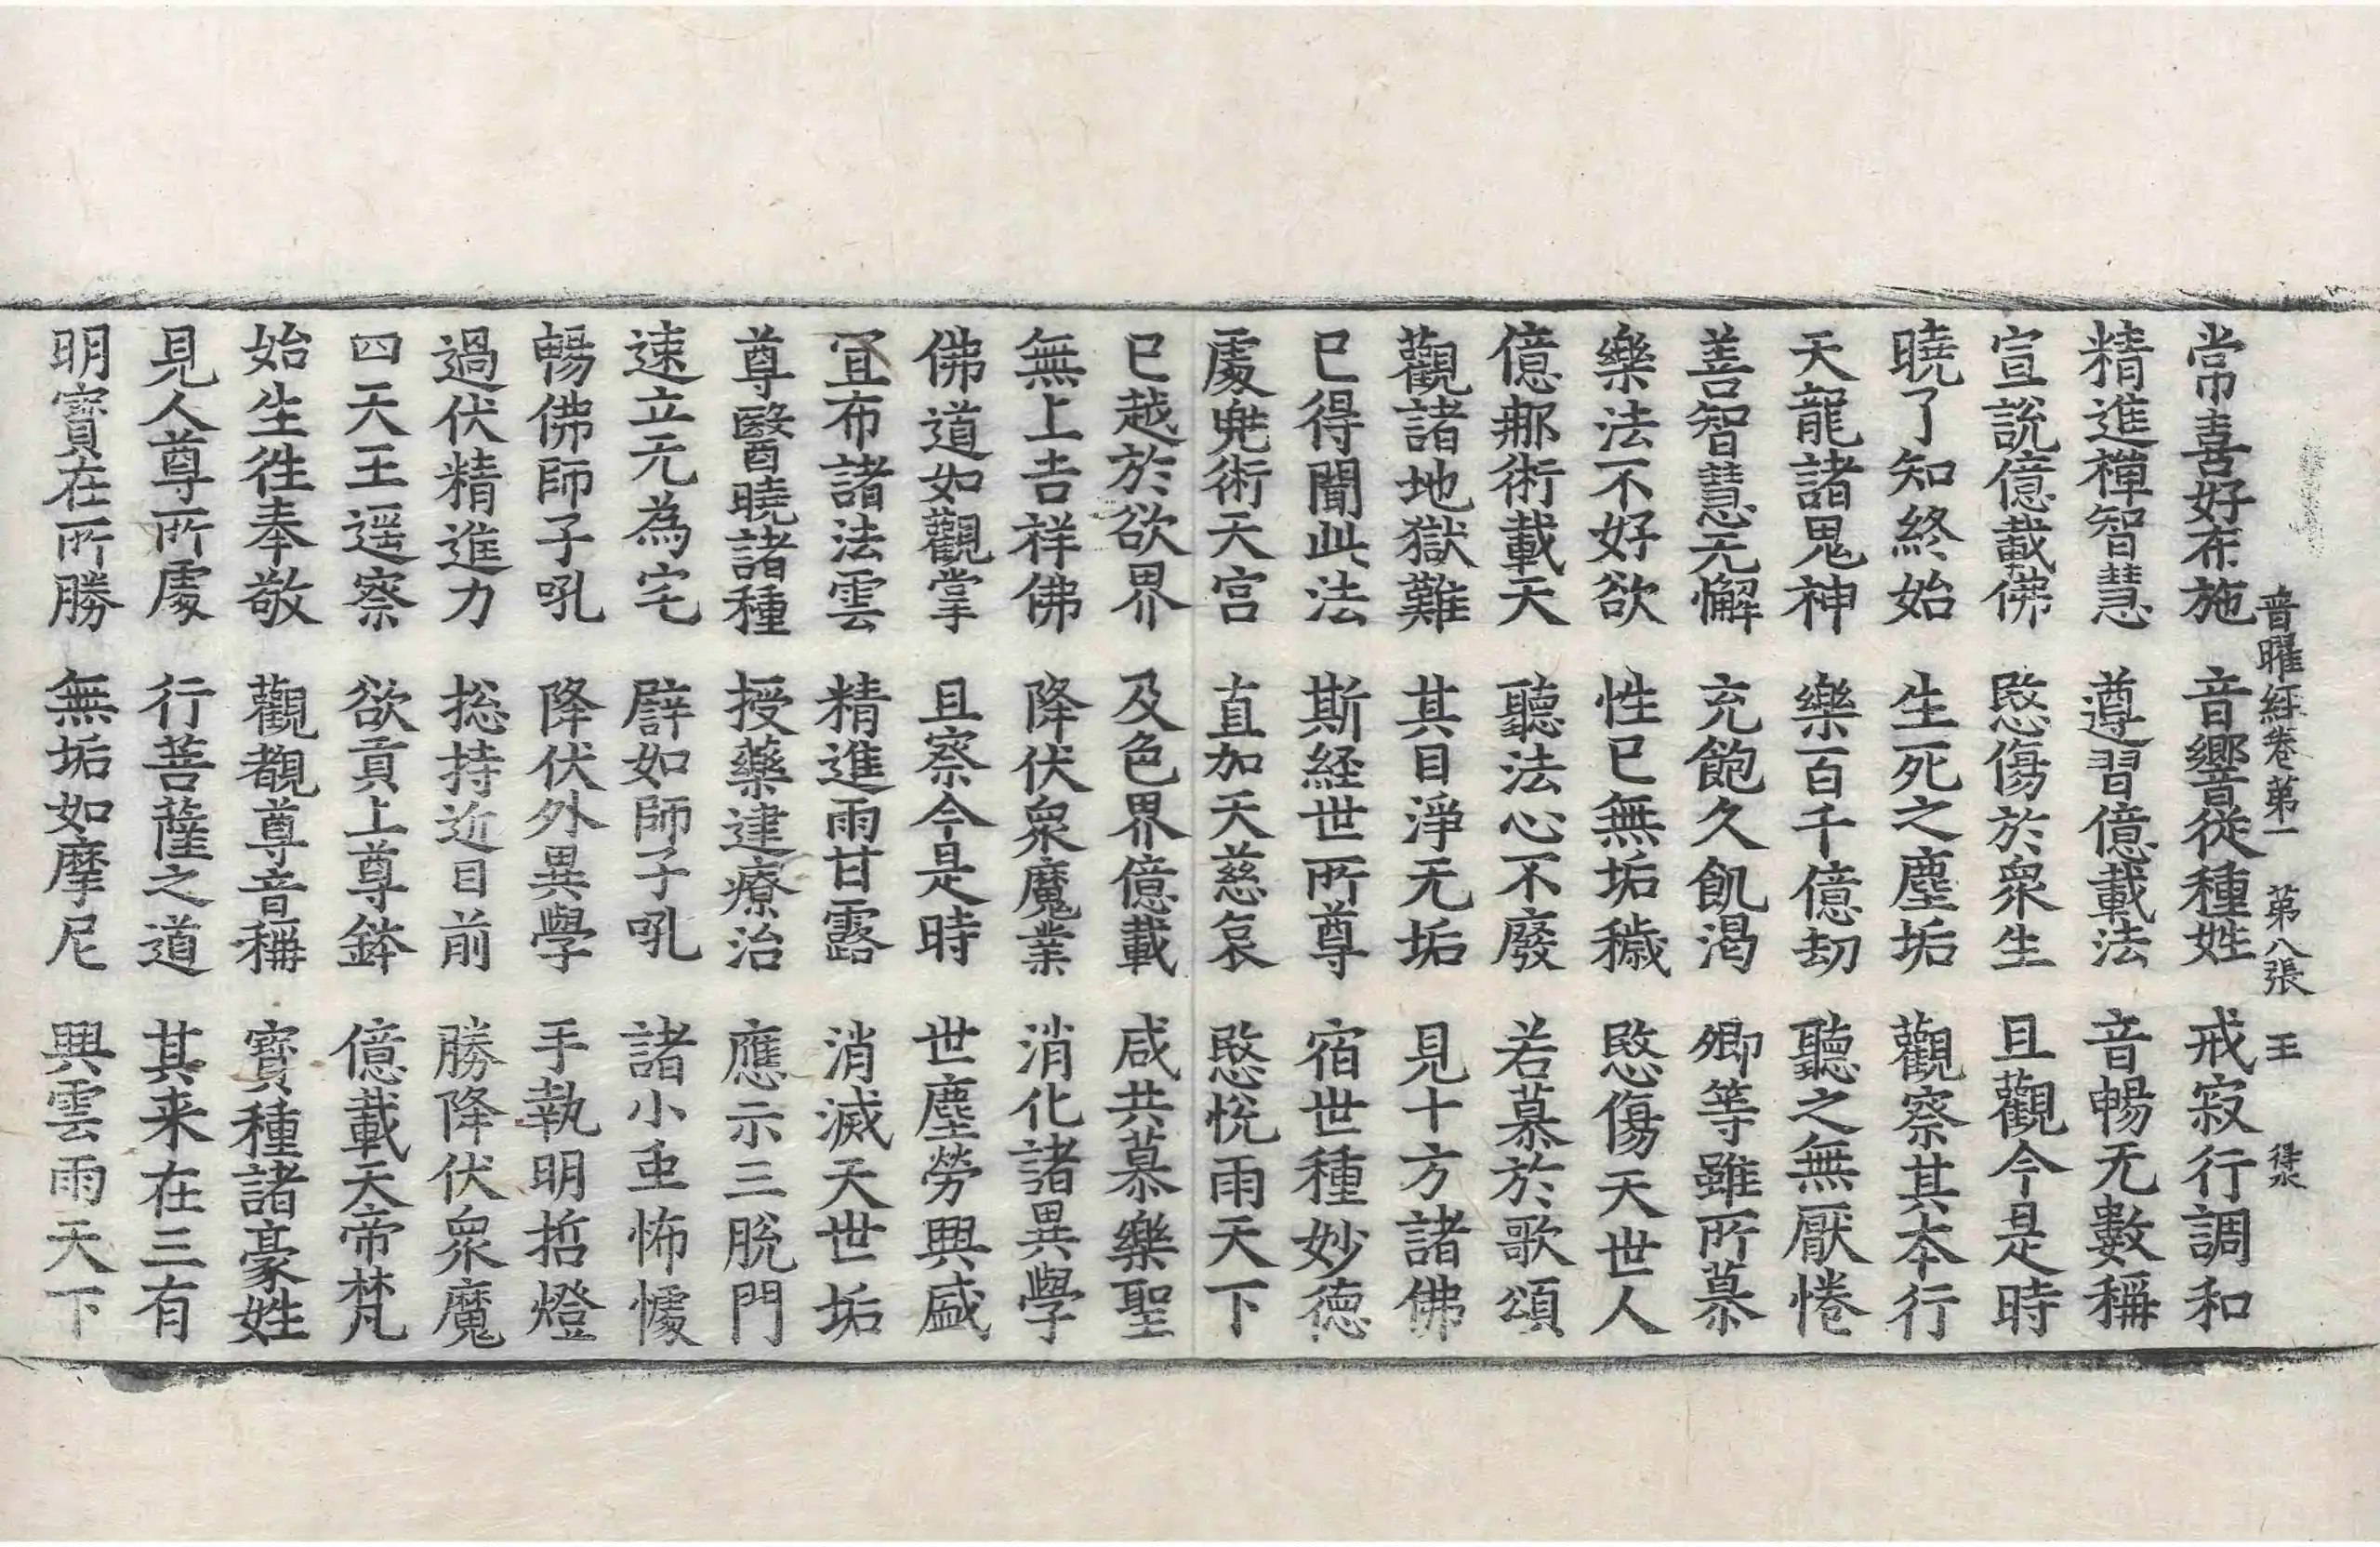 普曜経卷第一　第八張　王　得水
常喜好布施　音響從種姓　戒寂行調和
精進禪智慧　遵習億載法　音暢无數稱
宣說億載佛　愍傷於衆生　且觀今是時
曉了知終始　生死之塵垢　觀察其本行
天龍諸鬼神　樂百千億劫　聽之無厭惓
善智慧无懈　充飽久飢渴　卿等雖所慕
樂法不好欲　性已無垢穢　愍傷天世人
億那術載天　聽法心不廢　若慕於歌頌
觀諸地獄難　其目淨无垢　見十方諸佛
已得聞此法　斯経世所尊　宿世種妙德
處兠術天宮　直加天慈哀　愍恱雨天下
已越於欲界　及色界億載　咸共慕樂聖
無上吉祥佛　降伏衆魔業　消化諸異學
佛道如觀掌　且察今是時　世塵勞興盛
宜布諸法雲　精進雨甘露　消滅天世垢
尊醫曉諸種　授藥建療治　應示三脫門
速立无為宅　譬如師子吼　諸小䖝怖懅
暢佛師子吼　降伏外異學　手執明哲燈
過伏精進力　捴持近目前　勝降伏衆魔
四天王遥察　欲貢上尊鉢　億載天帝梵
始生徃奉敬　觀覩尊音稱　寳種諸豪姓
見人尊所處　行菩薩之道　其来在三有
明寳在所勝　無垢如摩尼　興雲雨天下